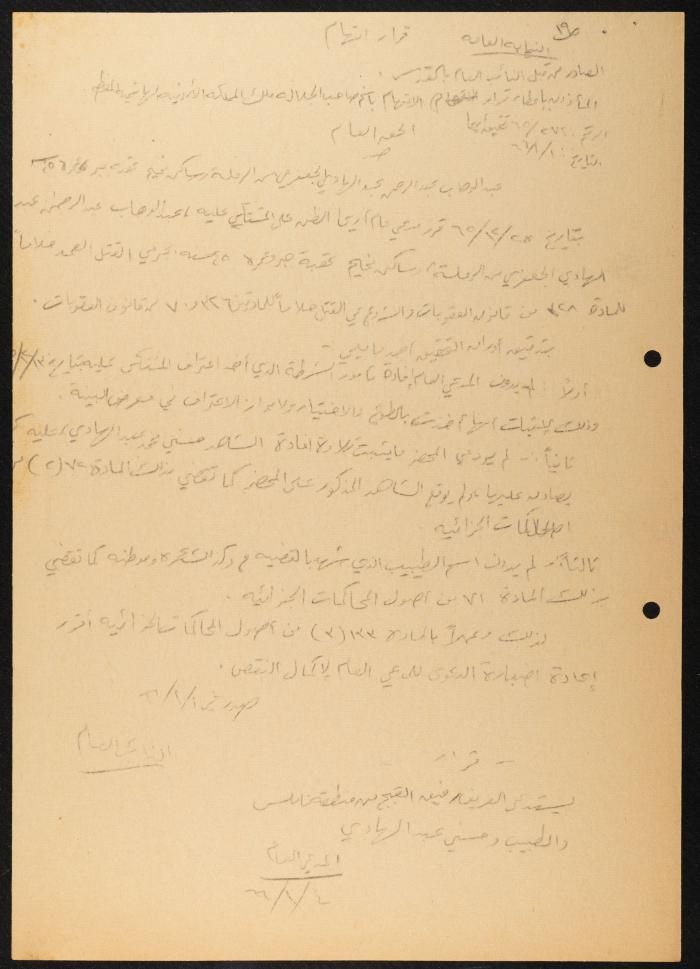 ١٩٥
النيابة العامة
قرار اتهام
الصادر من قبل النائب العام بالقدس
المأذون باعطاء قرار الاتهام باسم صاحب الجلالة ملك المملكة الأردنية الهاشمية المعظم
الرقم : ٦٥/٢٧٢ تحقيق أريحا
التاريخ : ٦٦/١/١٠
الحق العام
ضد
عبد الوهاب عبد الرحمن عبد الهادي الجعفري من الرملة وساكن مخيم عقبة جبر
بتاريخ ٦٥/١٢/٢٥ قرر مدعي عام أريحا الظن على المشتكى عليه عبد الوهاب عبد الرحمن عبد
الهادي الجعفري من الرملة وساكن مخيم عقبة جبر وعمره سنه بجرمي القتل العمد خلافاً
للمادة ٣٢٨ من قانون العقوبات والشروع في القتل خلافاً للمادتين ٣٢٦ و ٧٠ من قانون العقوبات .
بتدقيق أوراق التحقيق أجد ما يلي
أولاً : لم يدون المدعي العام إفادة مأمور الشرطة الذي أخذ اعتراف المشتكى عليه بتاريخ
وذلك لإثبات أنها أخذت بالطوع والاختيار ولا جواز الاعتراف في معرض البينة .
ثانياً :- لم يرد في المحضر ما يثبت تلاوة افادة الشاهد حسني محمد عبد الهادي عليه
يصادق عليها ولم يوقع الشاهد المذكور على المحضر كما تقضي بذلك المادة ٧٢ (٢) من
اصول المحاكمات الجزائيه .
ثالثاً :- لم يدون اسم الطبيب الذي شهد بالقضيه و ذكر الشهرة وموطنه كما تقضي
بذلك المادة ٧١ من أصول المحاكمات الجزائيه .
لذلك وعملاً بالمادة ١٣٣ (٣) من أصول المحاكمات الجزائيه أقرر
إعادة اضبارة الدعوى للمدعي العام لاكمال النقص .
صدر في ٦٦/١/١
النائب العام
- قرار -
يستدعى العريف رفيق القبج من منطقة نابلس
والطبيب وحسني عبد الهادي
المدعي العام